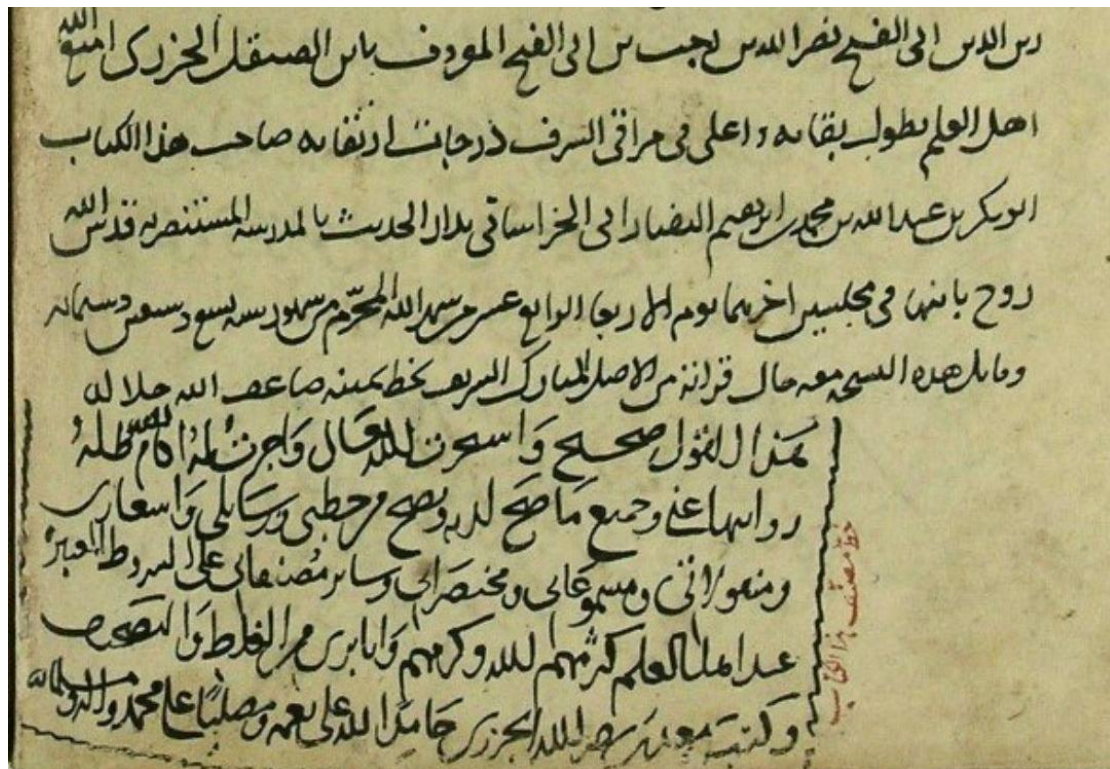 زين الدين ابى الفتح نصر الله بن رجب بن ابى الفتح المعروف بابن الصيقل الجزرى امتع الله
اهل العلم بطول بقائه و اعلى فى مراقى الشرف درجات ارتقائه صاحب هذا الكتاب
ابو بكر بن عبد الله بن محمد بن ابرهيم الخراسانى بدار الحديث بالمدرسه المستنصريه قدس الله
روح بانيها فى مجلسين اخرهما يوم الاربعا الرابع عشر من شهر الله المحرم من شهور سنه تسع وسبعين وستمائه
وقابل هذه النسخه معه حال قرائته من الاصل المبارك الشريف بخط يمينه ضاعف الله جلاله
هذا القول صحيح واستخرت الله تعالى واجزت له
روايتها عنى وجميع ما صح لديه ويصح من خطبى ورسايلى واشعارى
ومسموعاتى ومختصراتى وساير مصنفاتى على الشروط المعتبرة
عند العلم كثرهم الله وكرمهم وانا برى من الغلط والتصحيف
وكتب معد بن نصر الله الجزرى حامدا لله على نعمه ومصليا على محمد واله
خط مصنف هذا الكتاب